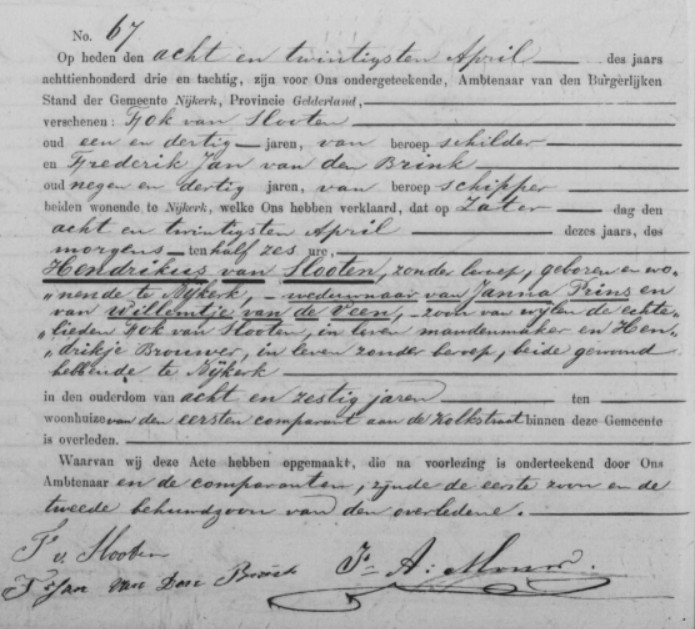 No. 67
Op heden den acht en twintigsten April des jaars
achttienhonderd drie en tachtig, zijn voor Ons ondergeteekende, Ambtenaar van den Burgerlijken
Stand der Gemeente Nijkerk, Provincie Gelderland,
verschenen: Fok van Slooten
oud een en dertig jaren, van beroep schilder
en Frederik Jan van den Brink
oud negen en dertig jaren, van beroep schipper
beiden wonende te Nijkerk, welke Ons hebben verklaard, dat op Zater dag den
acht en twintigsten April dezes jaars, des
morgens ten half zes ure,
Hendrikus van Slooten, zonder beroep, geboren en wo-
"nende te Nijkerk, - weduwnaar van Janna Prins en
van Willemtje van de Veen, - zoon van wijlen de echte-
"lieden Fok van Slooten, in leven mandenmaker en Hen-
"drikje Brouwer, in leven zonder beroep, beide gewoond
hebbende te Nijkerk
in den ouderdom van acht en zestig jaren ten
woonhuize van den eersten comparant aan de Kolkstraat binnen deze Gemeente
is overleden.
Waarvan wij deze Acte hebben opgemaakt, die na voorlezing is onderteekend door Ons
Ambtenaar en de comparanten, zijnde de eerste zoon en de
tweede behuwdzoon van den overledene.
F v. Slooten
F: Jan van Den Brink